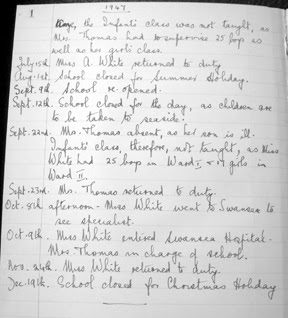 1
1947
time, the Infants' class was not taught, as
Mrs. Thomas had to supervise 25 boys as
well as her girls' class.
July 15th. Miss A. White returned to duty.
Aug. 1st. School closed for Summer Holiday.
Sept. 9th. School re-opened.
Sept. 12th. School closed for the day, as children are
to be taken to seaside.
Sept. 22nd. Mrs. Thomas absent, as her son is ill.
Infants' class, therefore, not taught, as Miss
White had 25 boys in Ward I + 17 girls in
Ward II.
Sept. 23rd. Mrs. Thomas returned to duty.
Oct. 8th afternoon - Miss White went to Swansea to
see specialist.
Oct. 9th. Miss White entered Swansea Hospital.
Mrs. Thomas in charge of school.
Nov. 24th. Miss White returned to duty.
Dec. 19th. School closed for Christmas Holiday